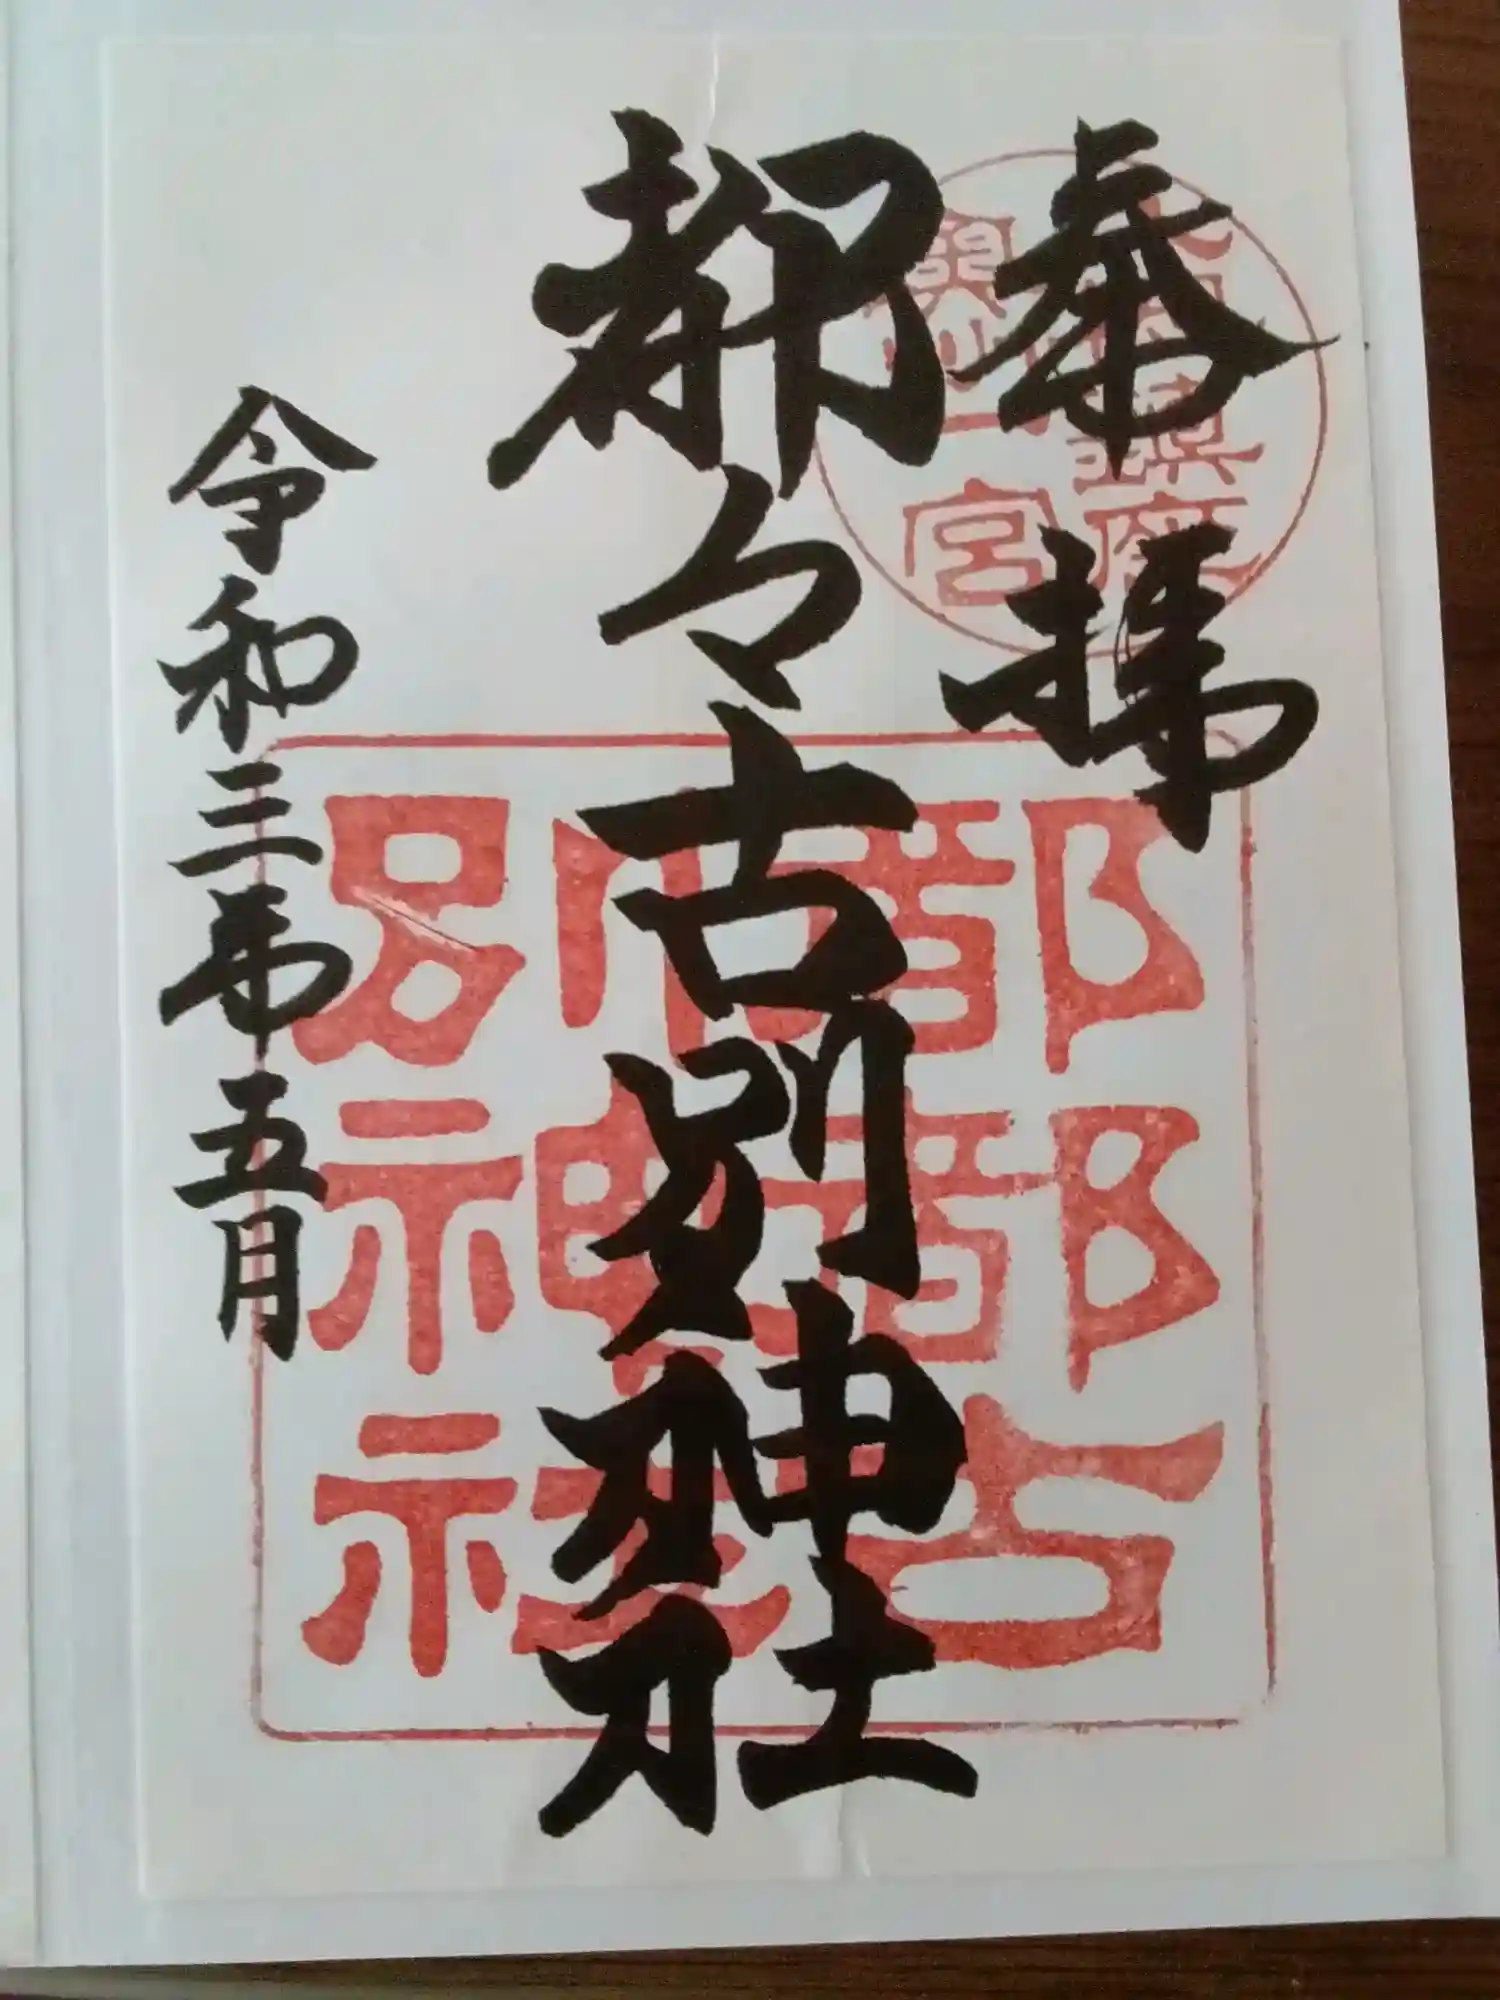 奉拝
都々古別神社
令和三年五月
鎮座
奥州一宮
都都古
別神社